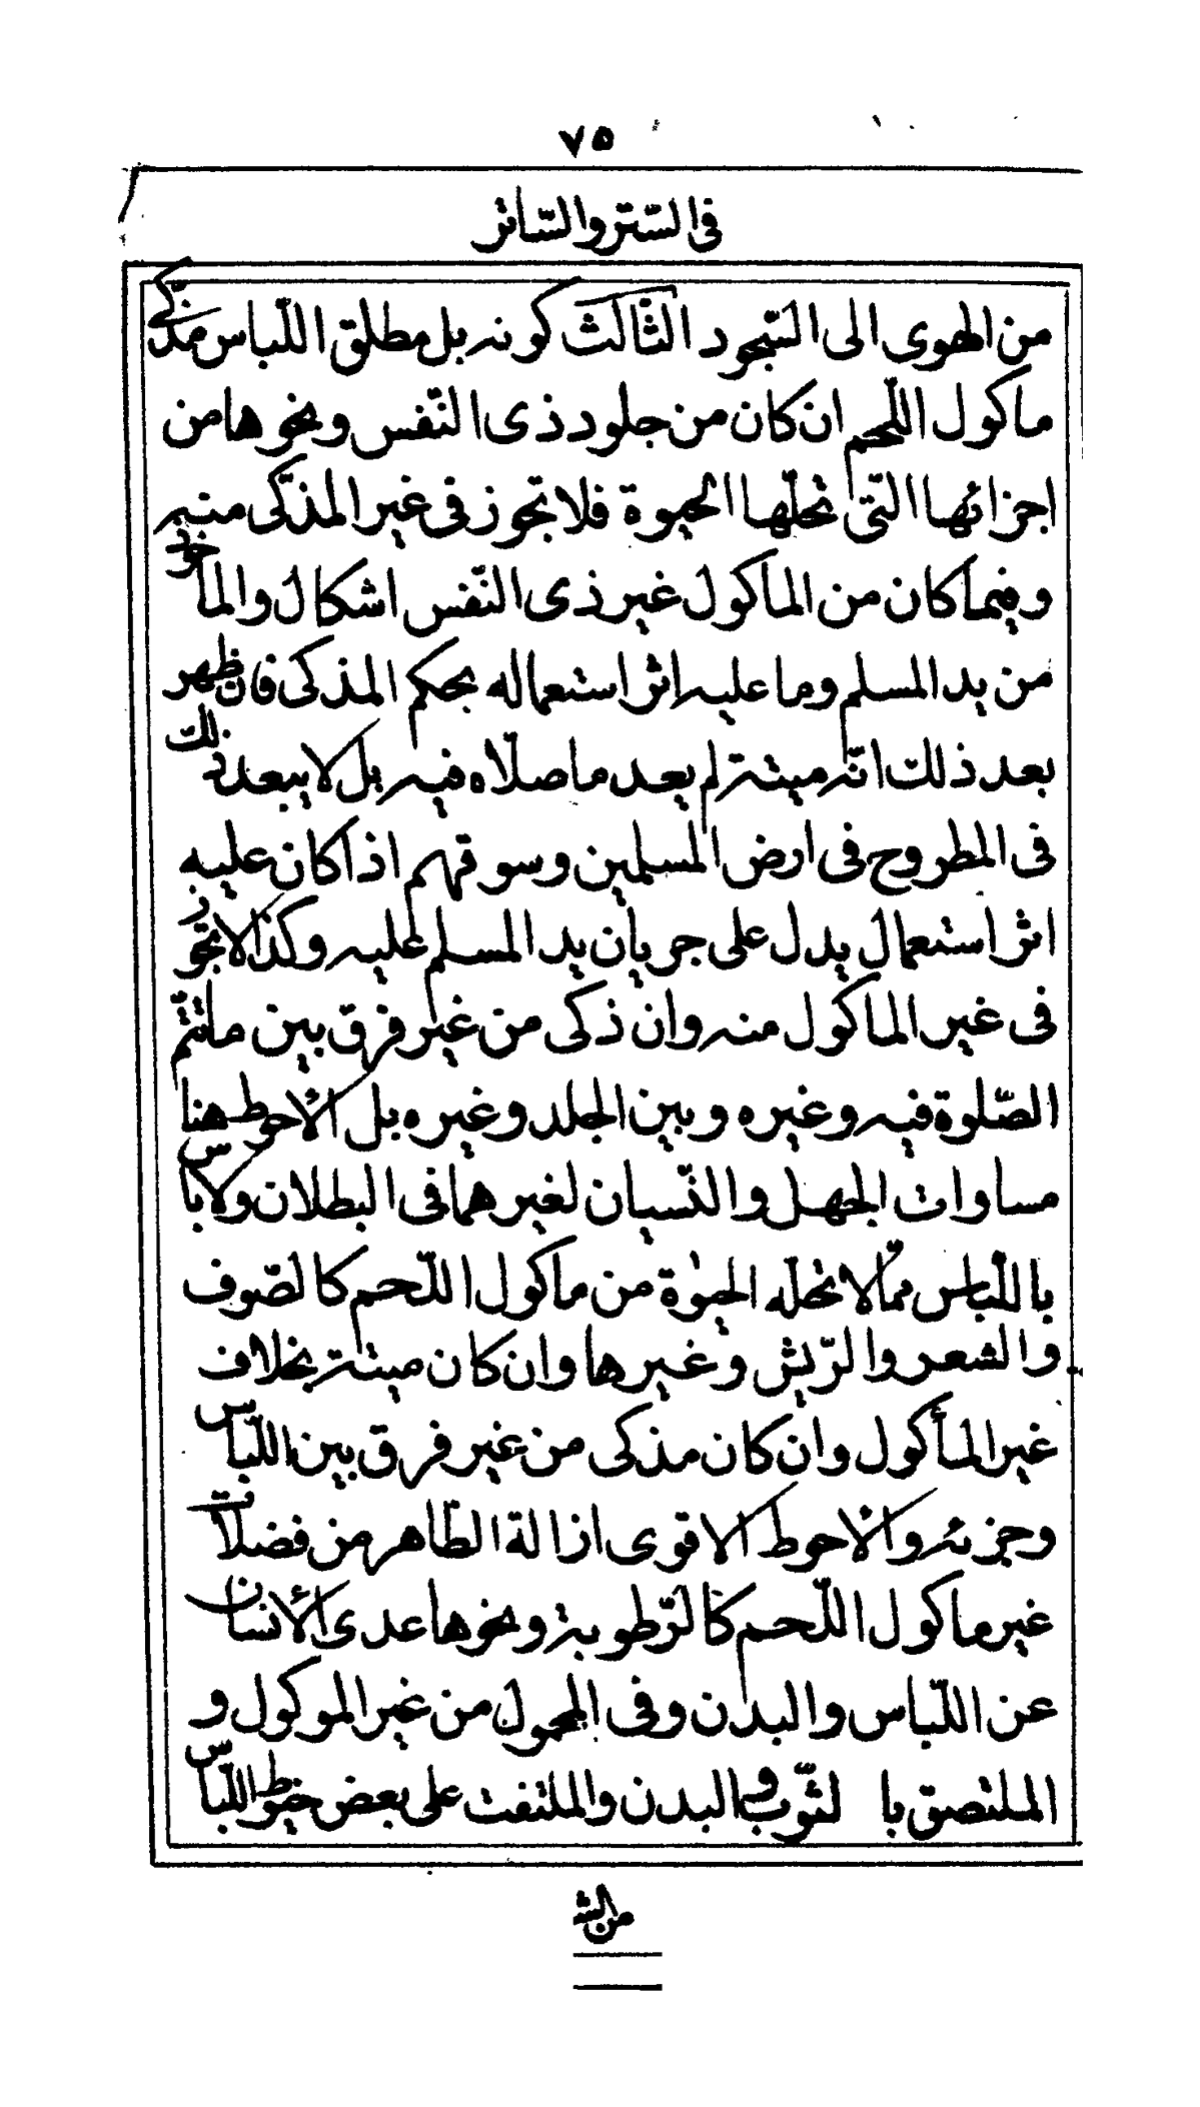 ٧٥
فى السّتر والسّاتر
من الهوى الى السّجود الثّالث كونه بل مطلق اللّباس مذكّى
ماكول اللّحم ان كان من جلود ذى النّفس ونحوها من
اجزائها الّتى تحلّها الحيوة فلا تجوز فى غير المذكّى منه
وفيما كان من الماكول غير ذى النّفس اشكال والمأخوذ
من يد المسلم وما عليه اثر استعماله بحكم المذكى فان ظهر
بعد ذلك انّه ميتة لم يعد ما صلّاه فيه بل لا يبعد ذلك
فى المطروح فى ارض المسلمين وسوقهم اذا كان عليه
اثر استعمال يدل على جريان يد المسلم عليه وكذا لا تجوز
فى غير الماكول منه وان ذكى من غير فرق بين ما تتمّ
الصّلوة فيه وغيره وبين الجلد وغيره بل الأحوط هنا
مساوات الجهل والنّسيان لغيرهما فى البطلان ولا باس
باللّباس ممّا لا تحلّه الحيوة من ماكول اللّحم كالصّوف
والشعر والرّيش وغيرها وان كان ميتة بخلاف
غير المأكول وان كان مذكى من غير فرق بين اللّباس
وجزئه والأحوط الاقوى ازالة الطّاهر من فضلات
غير ماكول اللّحم كالرّطوبة ونحوها عدى الأنسان
عن اللّباس والبدن وفى المحمول من غير الموكول و
الملتصق با لثّوب والبدن والملتفت على بعض خيوط اللّباس
من الش